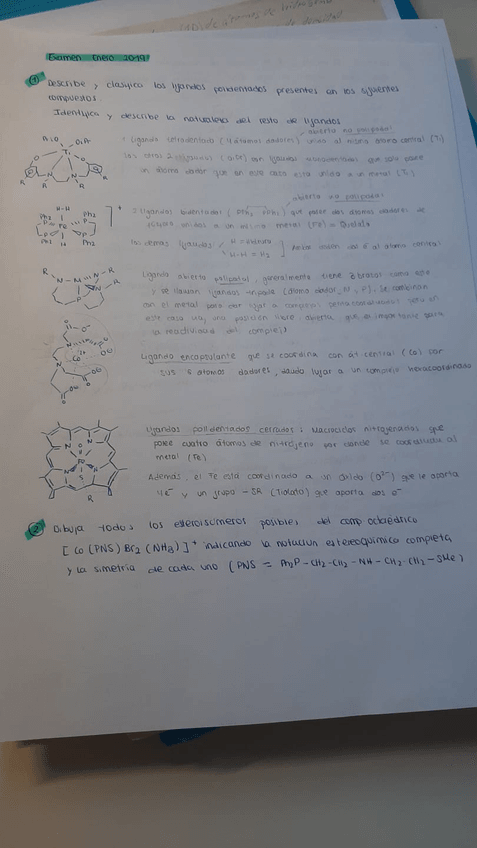 Examen Enero 2019
① Describe y clasifica los ligandos polidentados presentes en los siguientes
compuestos
Identifica y describe la naturaleza del resto de ligandos
abierto no polipodal
· Ligando tetradentado (4 átomos dadores) unido al mismo átomo central (Ti)
los otros 2 ligandos (OiPr) son ligandos monodentados que solo
un átomo dador que en este caso esta unido a un metal (Ti)
abierto no polipodal
· 2 ligandos bidentados (PPh2 PPh2) que posee dos átomos dadores de
unidos a un mismo metal (Fe) = Quelato
los demás ligandos H = hidruro
H-H = H2
Ligando abierto polipodal, generalmente tiene 3 brazos como este
y se llaman ligandos tripodal (átomo dador, N, P). Se combinan
con el metal para dar lugar a complejos pentacoordinados pero en
este caso hay una posición libre, abierta que es importante para
la reactividad del complejo
Ligando encapsulante que se coordina con át central (Co) con
sus 6 átomos dadores, dando lugar a un complejo hexacoordinado
Ligandos polidentados cerrados: Macrociclos nitrogenados que
posee cuatro átomos de nitrógeno por donde se coordinan al
metal (Fe)
Además, el Fe está coordinado a un óxido (O²⁻) que le aporta
4e⁻ y un grupo -SR (Tiolato) que aporta dos e⁻
② Dibuja todos los estereoisómeros posibles del comp octaédrico
[Co(PNS)Br2(NH3)]⁺ indicando la notación estereoquímica completa
y la simetría de cada uno (PNS = Ph2P-CH2-CH2-NH-CH2-CH2-SMe)